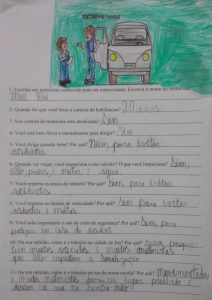 ENTREVISTANDO
1- Escolha um motorista conhecido para ser entrevistado. Escreva o nome do motorista:
Meu Pai
2- Quando foi que você tirou a carteira de habilitação? 20 anos
3- Sua carteira de motorista está atualizada? Sim
4- Você está bem física e mentalmente para dirigir? Sim
5- Você dirige quando bebe? Por quê? Não, para evitar
acidentes
6- Quando vai viajar, você inspeciona o seu veículo? O que você inspeciona? Sim,
óleo, pneus, motor, e água.
7- Você respeita os sinais de trânsito? Por quê? Sim para evitar
acidentes
8- Você respeita os limites de velocidade? Por quê? Sim, para evitar
acidentes e multas.
9- Você acha importante o uso do cinto de segurança? Por quê? Sim, para
proteger em caso de acidente
10- Na sua opinião, como é o trânsito na cidade de Por quê?
tem muitos e muitos motoristas
que não respeitam a sinalização
11- Na sua opinião, como é o trânsito na rua da nossa escola? Por quê? Movimentado
e muitos motoristas por um lugar proibido e
na rua na contra mão